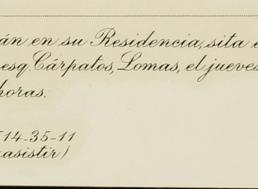 án en su Residencia, sita e
esq. Cárpatos, Lomas, el jueves
horas.
514-35-11
asistir)